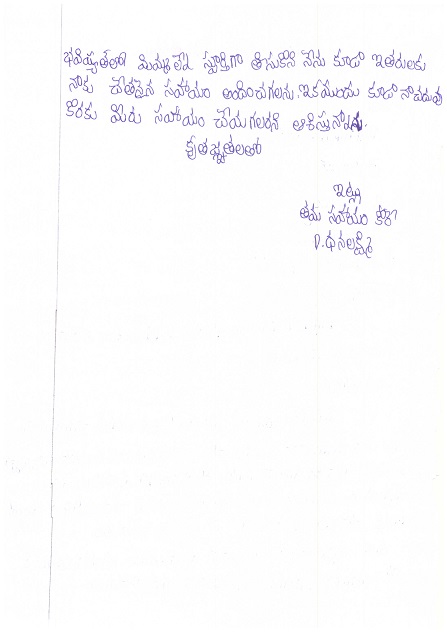 భవిష్యత్‌లో మిమ్మల్నే స్ఫూర్తిగా తీసుకొని నేను కూడా ఇతరులకు
నాకు చేతనైన సహాయం అందించగలను. ఇకముందు కూడా నా చదువు
కొరకు మీరు సహాయం చేయగలరని ఆశిస్తున్నాను.
కృతజ్ఞతలతో
ఇట్లు
తమ సహాయం కోరే
D. ధనలక్ష్మి